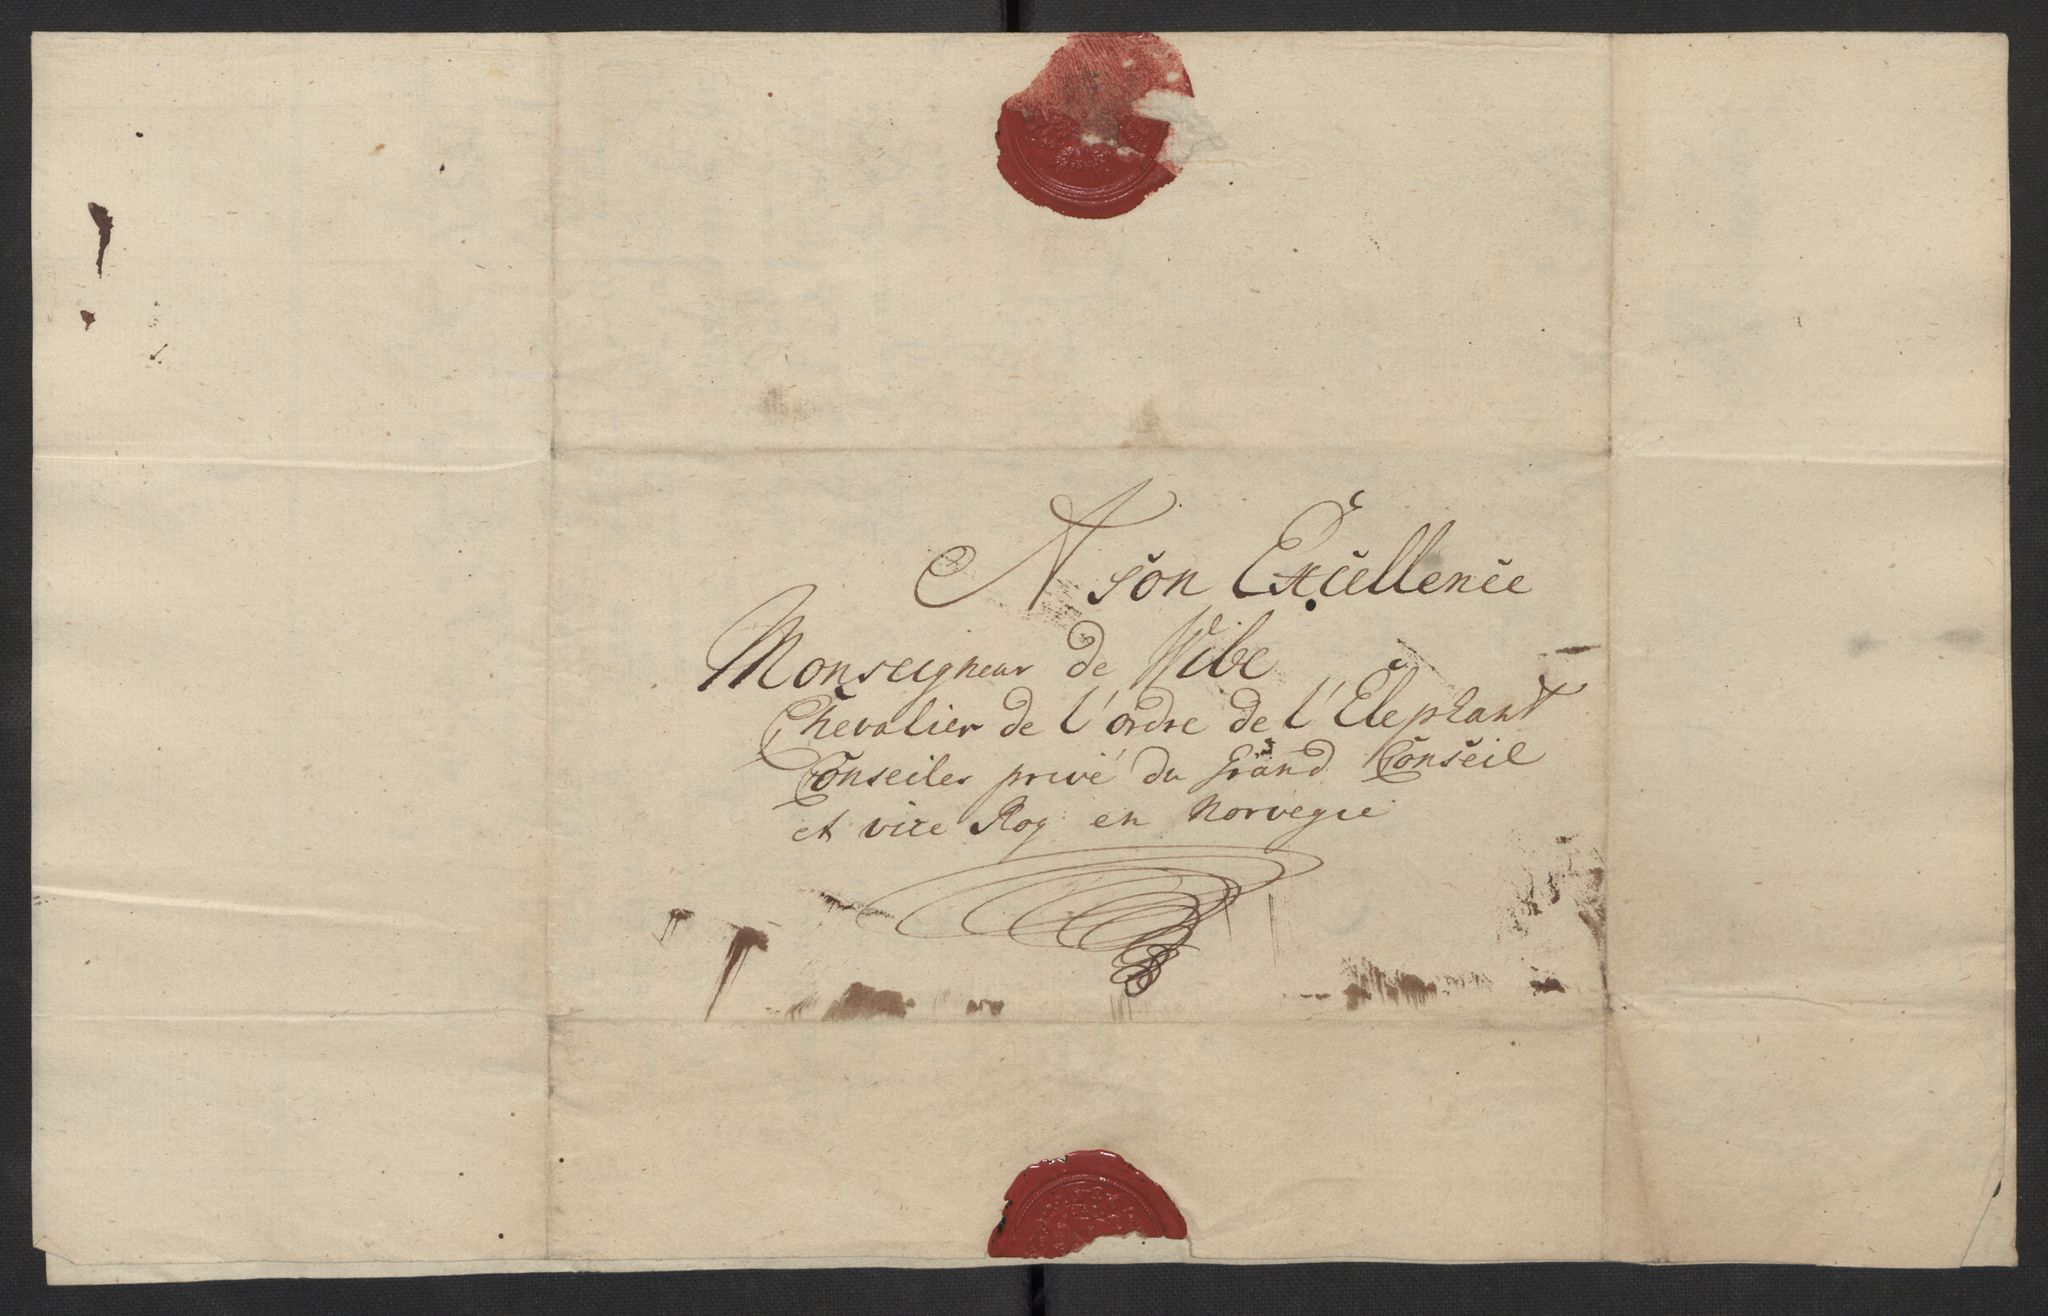 A son Excellence
Monseigneur de Wibe
Chevalier de l'ordre de l'Elephant
Conseiler privé du Grand Conseil
et vice Roy en Norvegie